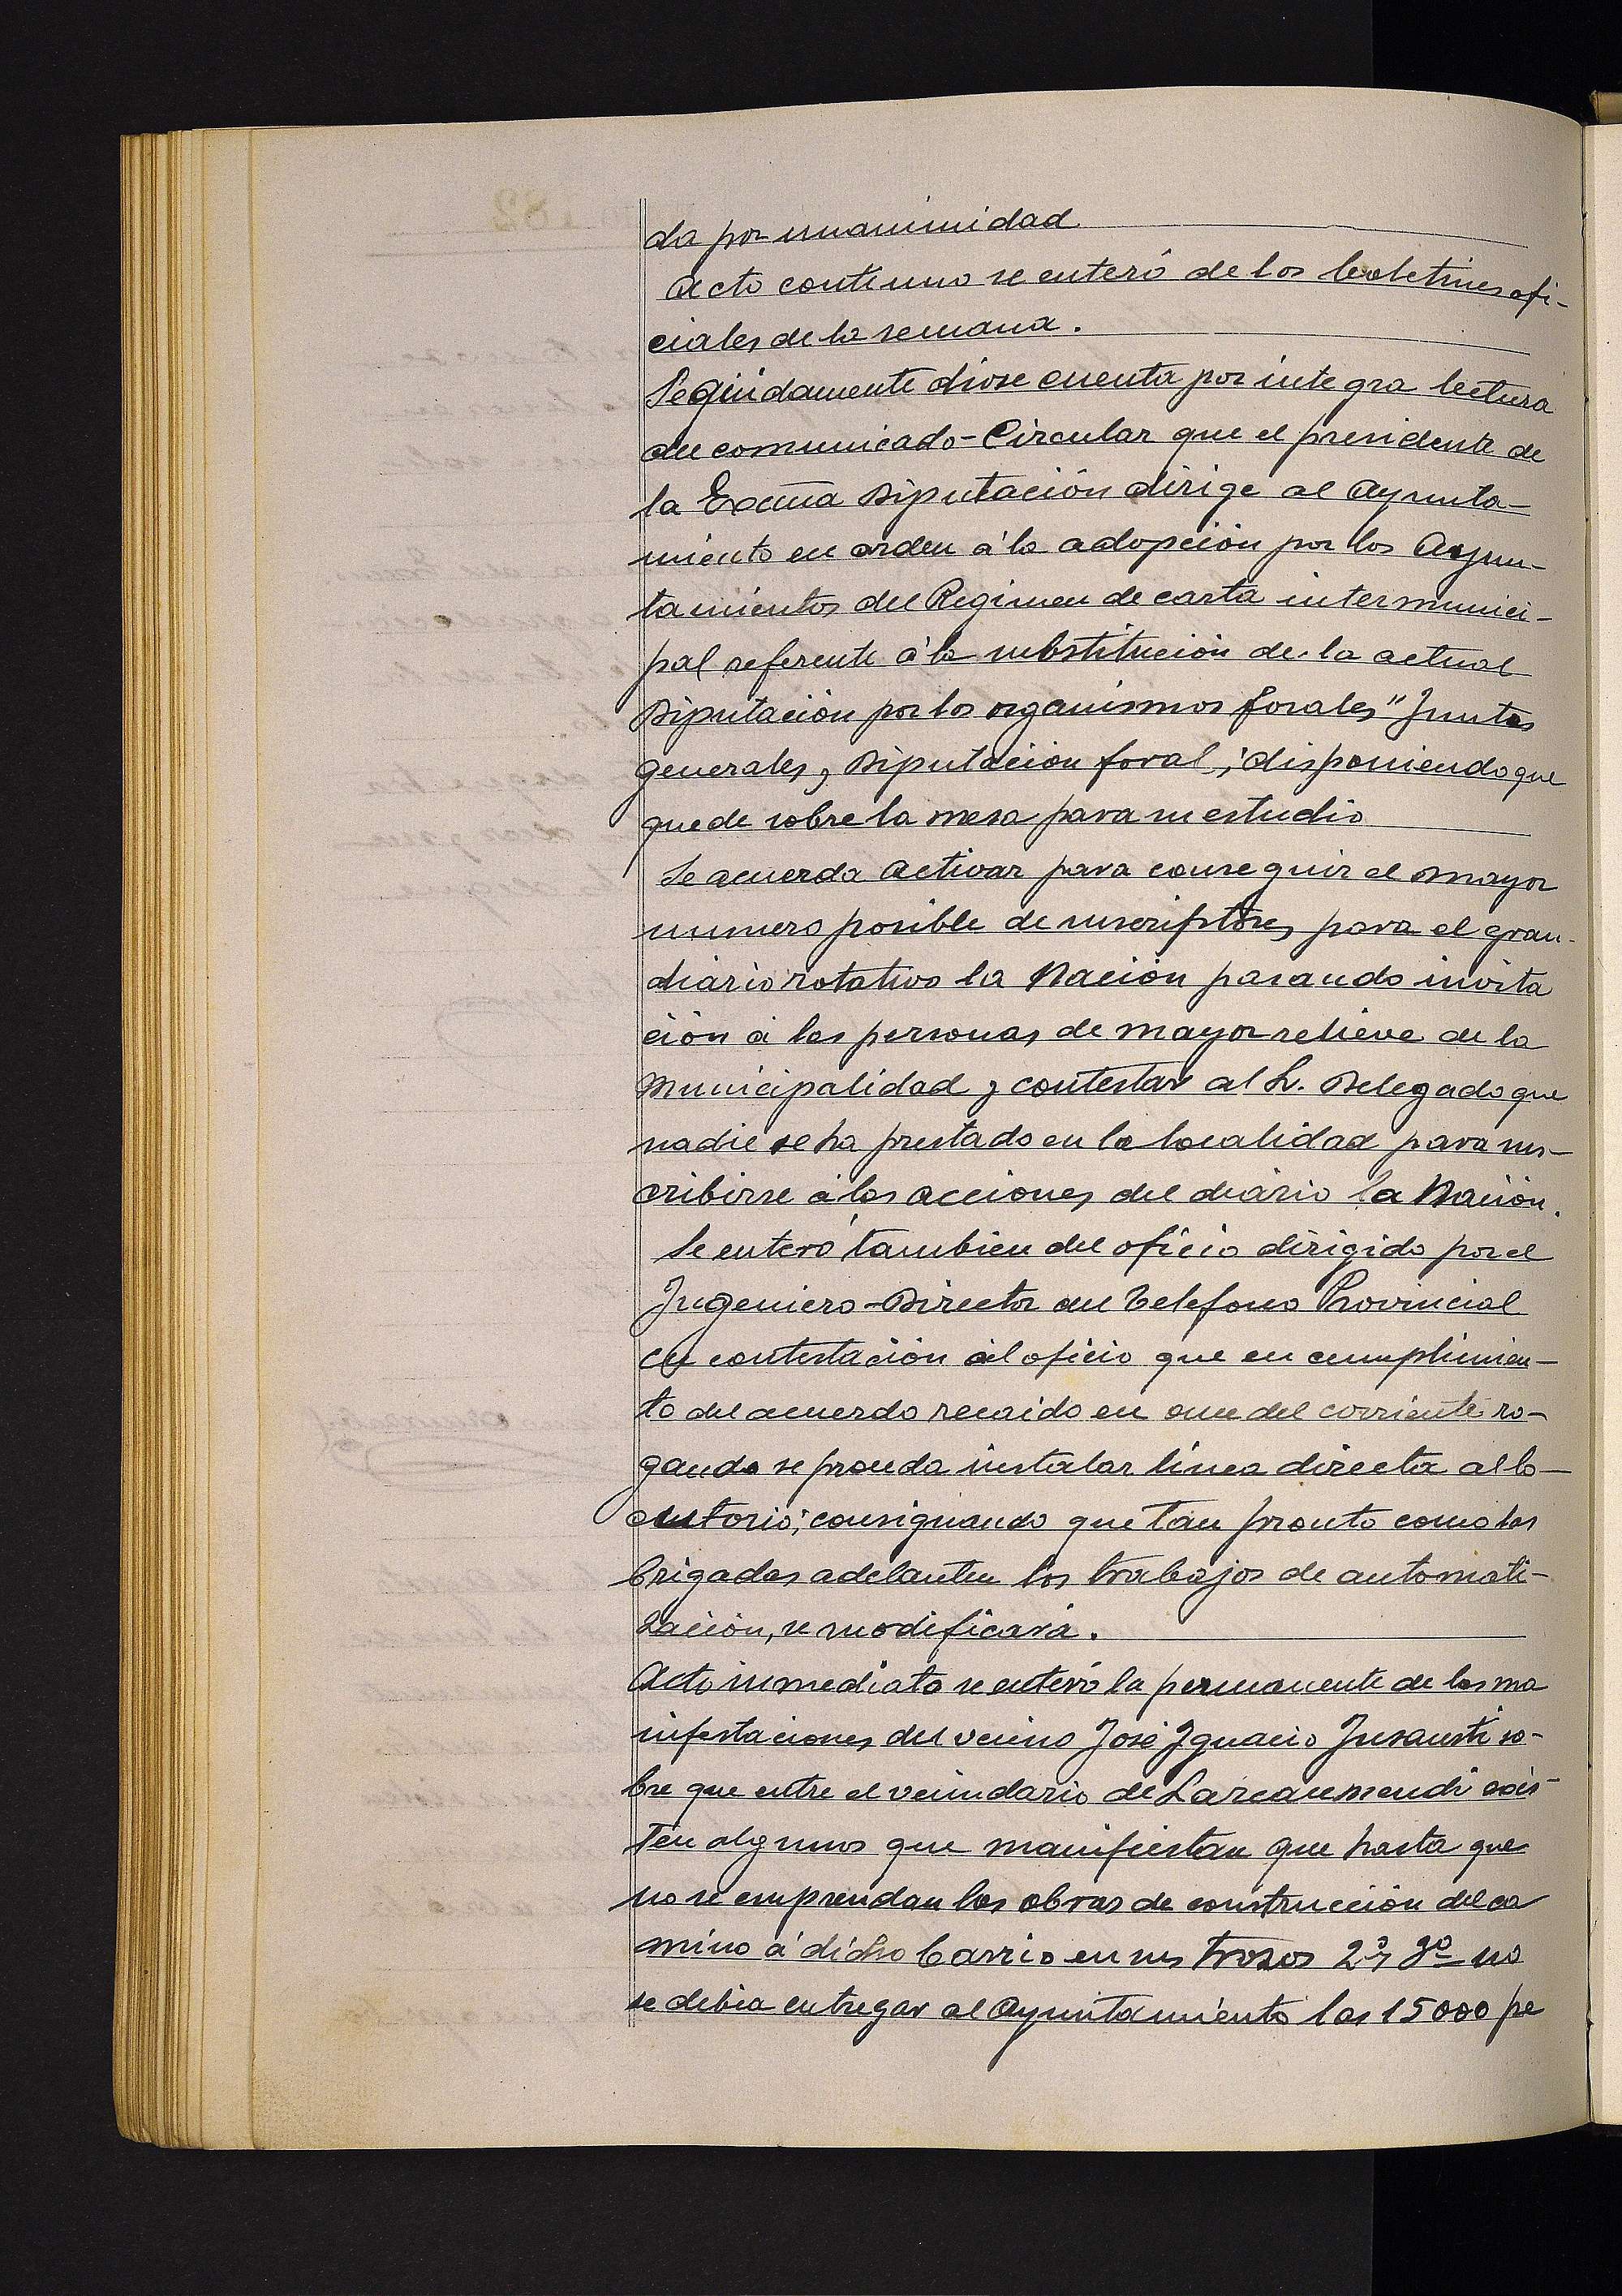 da por unanimidad
Acto contínuo se enteró de los boletines ofi-
ciales de la semana.
Seguidamente diose cuenta por integra lectura
del comunicado-Circular que el presidente de
la Excma Diputación dirige al Ayunta-
miento en orden á la adopción por los Ayun-
tamientos del Regimen de carta intermunici-
pal referente á la substitución de la actual
Diputación por los organismos forales "Juntas
generales y Diputación foral; disponiendo que
quede sobre la mesa para su estudio
Se acuerda activar para conseguir el mayor
numero posible de suscriptores para el gran
diario rotativo la Nación pasando invita
ción á las personas de mayor relieve de la
Municipalidad y contestar al S. Delegado que
nadie se ha prestado en la localidad para sus-
cribirse á las acciones del diario la Nación.
Se enteró tambien del oficio dirigido por el
Ingeniero-Director del Telefono Provincial
en contestación al oficio que en cumplimien-
to del acuerdo recaido en once del corriente ro-
gando se proceda instalar línea directa al lo-
cutorio; consignando que tan pronto como las
brigadas adelanten los trabajos de automati-
zación, se modificará.
Acto inmediato se enteró la permanente de las ma
nifestaciones del vecino José Ignacio Insausti so-
bre que entre el vecindario de Larraumendi exis-
ten algunos que manifiestan que hasta que
no se emprendan las obras de construcción del ca
mino á dicho barrio en sus trozos 2º y 3º no
se debia entregar al Ayuntamiento las 15000 pe